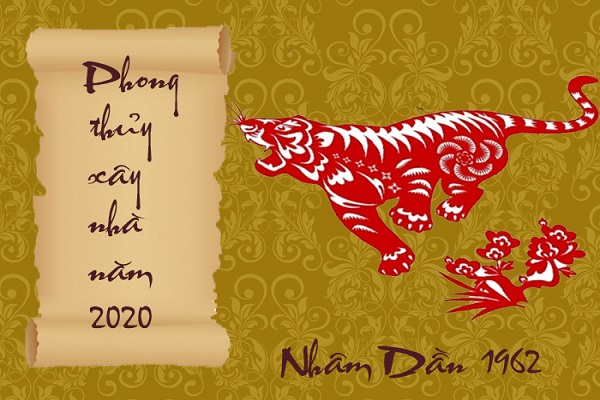 Phong
thủy
xây
nhà
năm
2020
Nhâm Dần 1962